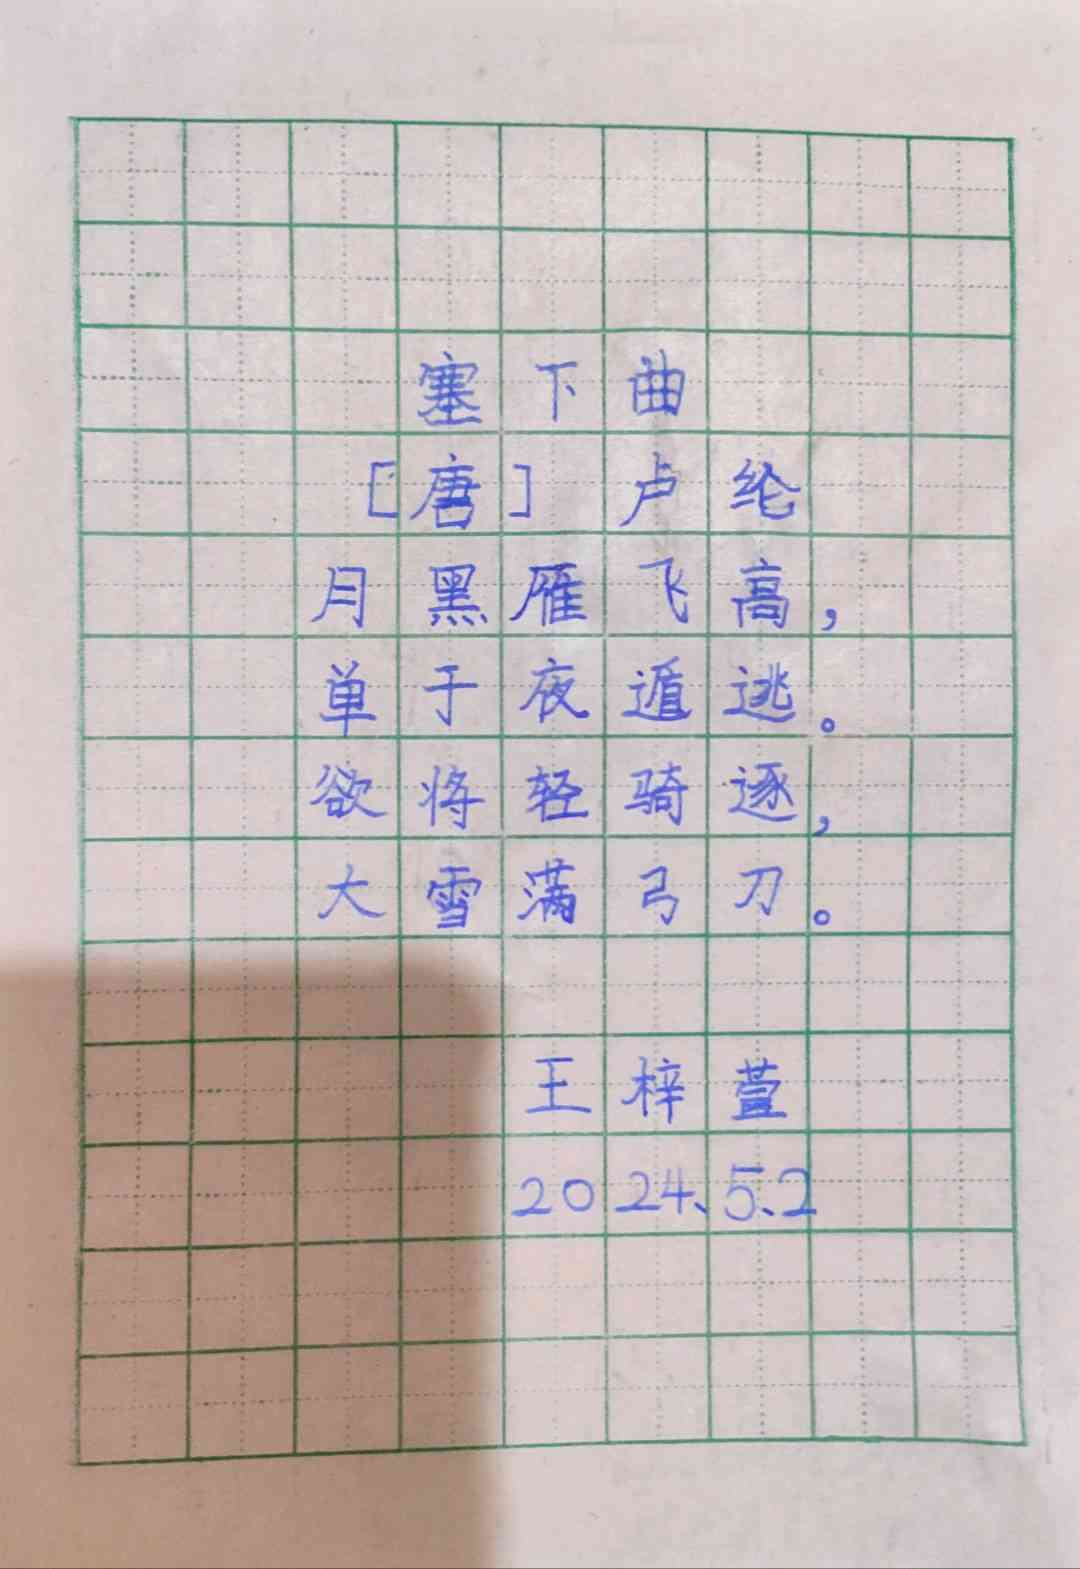 塞下曲
[唐] 卢纶
月黑雁飞高，
单于夜遁逃。
欲将轻骑逐，
大雪满弓刀。
王梓萱
2024、5、2